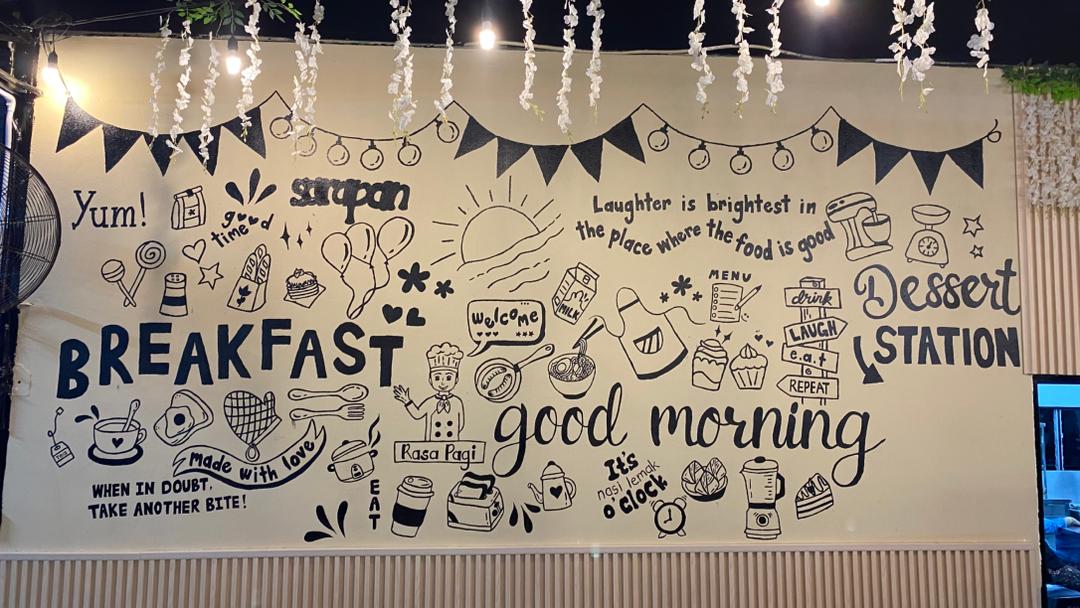 Yum!
good
time
sarapan
Laughter is brightest in
the place where the food is good
MILK
MENU
Dessert
STATION
welcome
drink
LAUGH
e.a.t
REPEAT
BREAKFAST
good morning
Rasa Pagi
made with love
WHEN IN DOUBT,
TAKE ANOTHER BITE!
EAT
It's
nasi lemak
o'clock